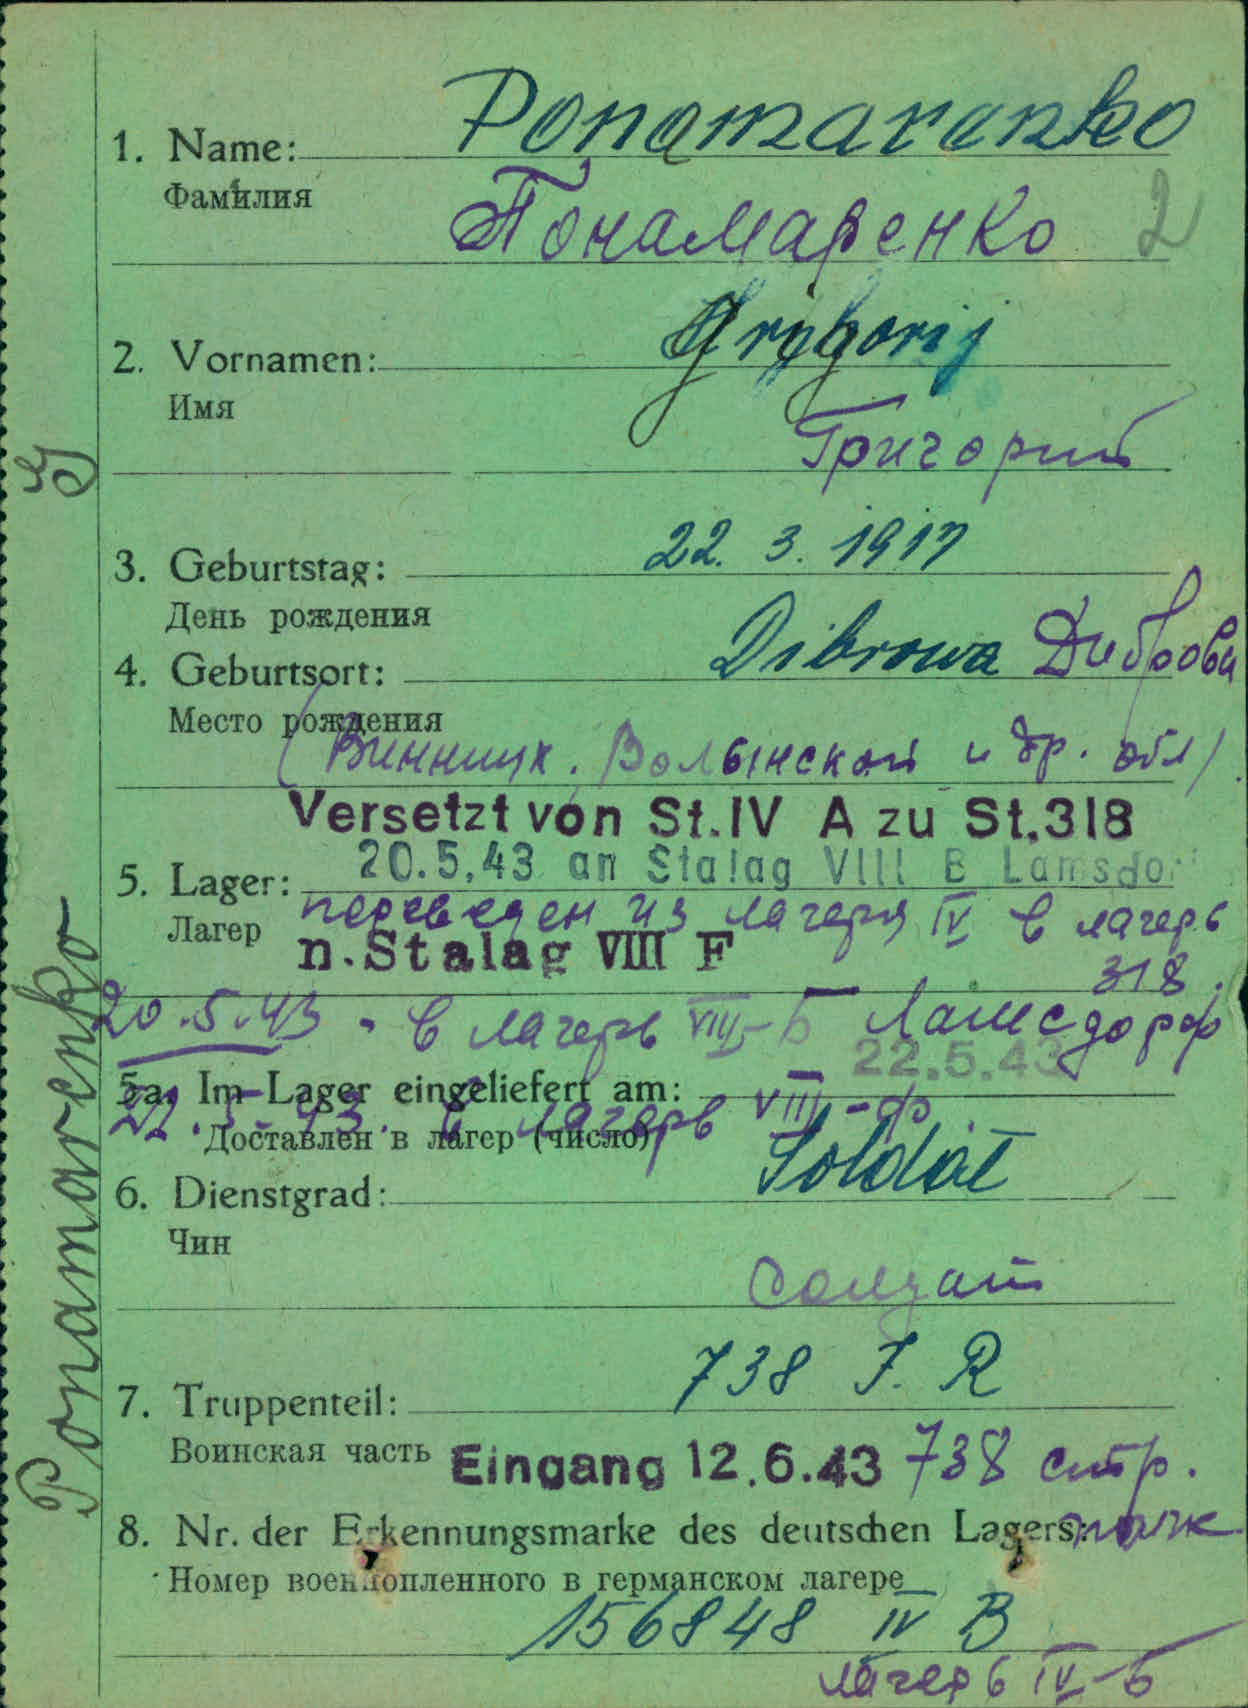 1. Name: Ponamarenko
Фамилия
Понамаренко 2
2. Vornamen: Grigorij
Имя
Григорий
3. Geburtstag: 22. 3. 1917
День рождения
4. Geburtsort: Dibrowa Диброва
Место рождения
(Винницк. Волынской и др. обл)
Versetzt von St.IV A zu St.318
20.5.43 an Stalag VIII B Lamsdor
5. Lager:
Лагер
переведен из лагеря IV в лагерь
n.Stalag VIII F
318.
20.5.43 - в лагерь VIII-Б Ламсдорф
22.5.43
5a. Im Lager eingeliefert am:
22.5.43. в лагерь VIII-ф.
Доставлен в лагер (число)
6. Dienstgrad: Soldat
Чин
Солдат
7. Truppenteil: 738 J. R
Воинская часть
Eingang 12.6.43 738 стр.
полк
8. Nr. der Erkennungsmarke des deutschen Lagers:
Номер военнопленного в германском лагере
156848 IV B
лагерь IV-Б
Ponamarenko